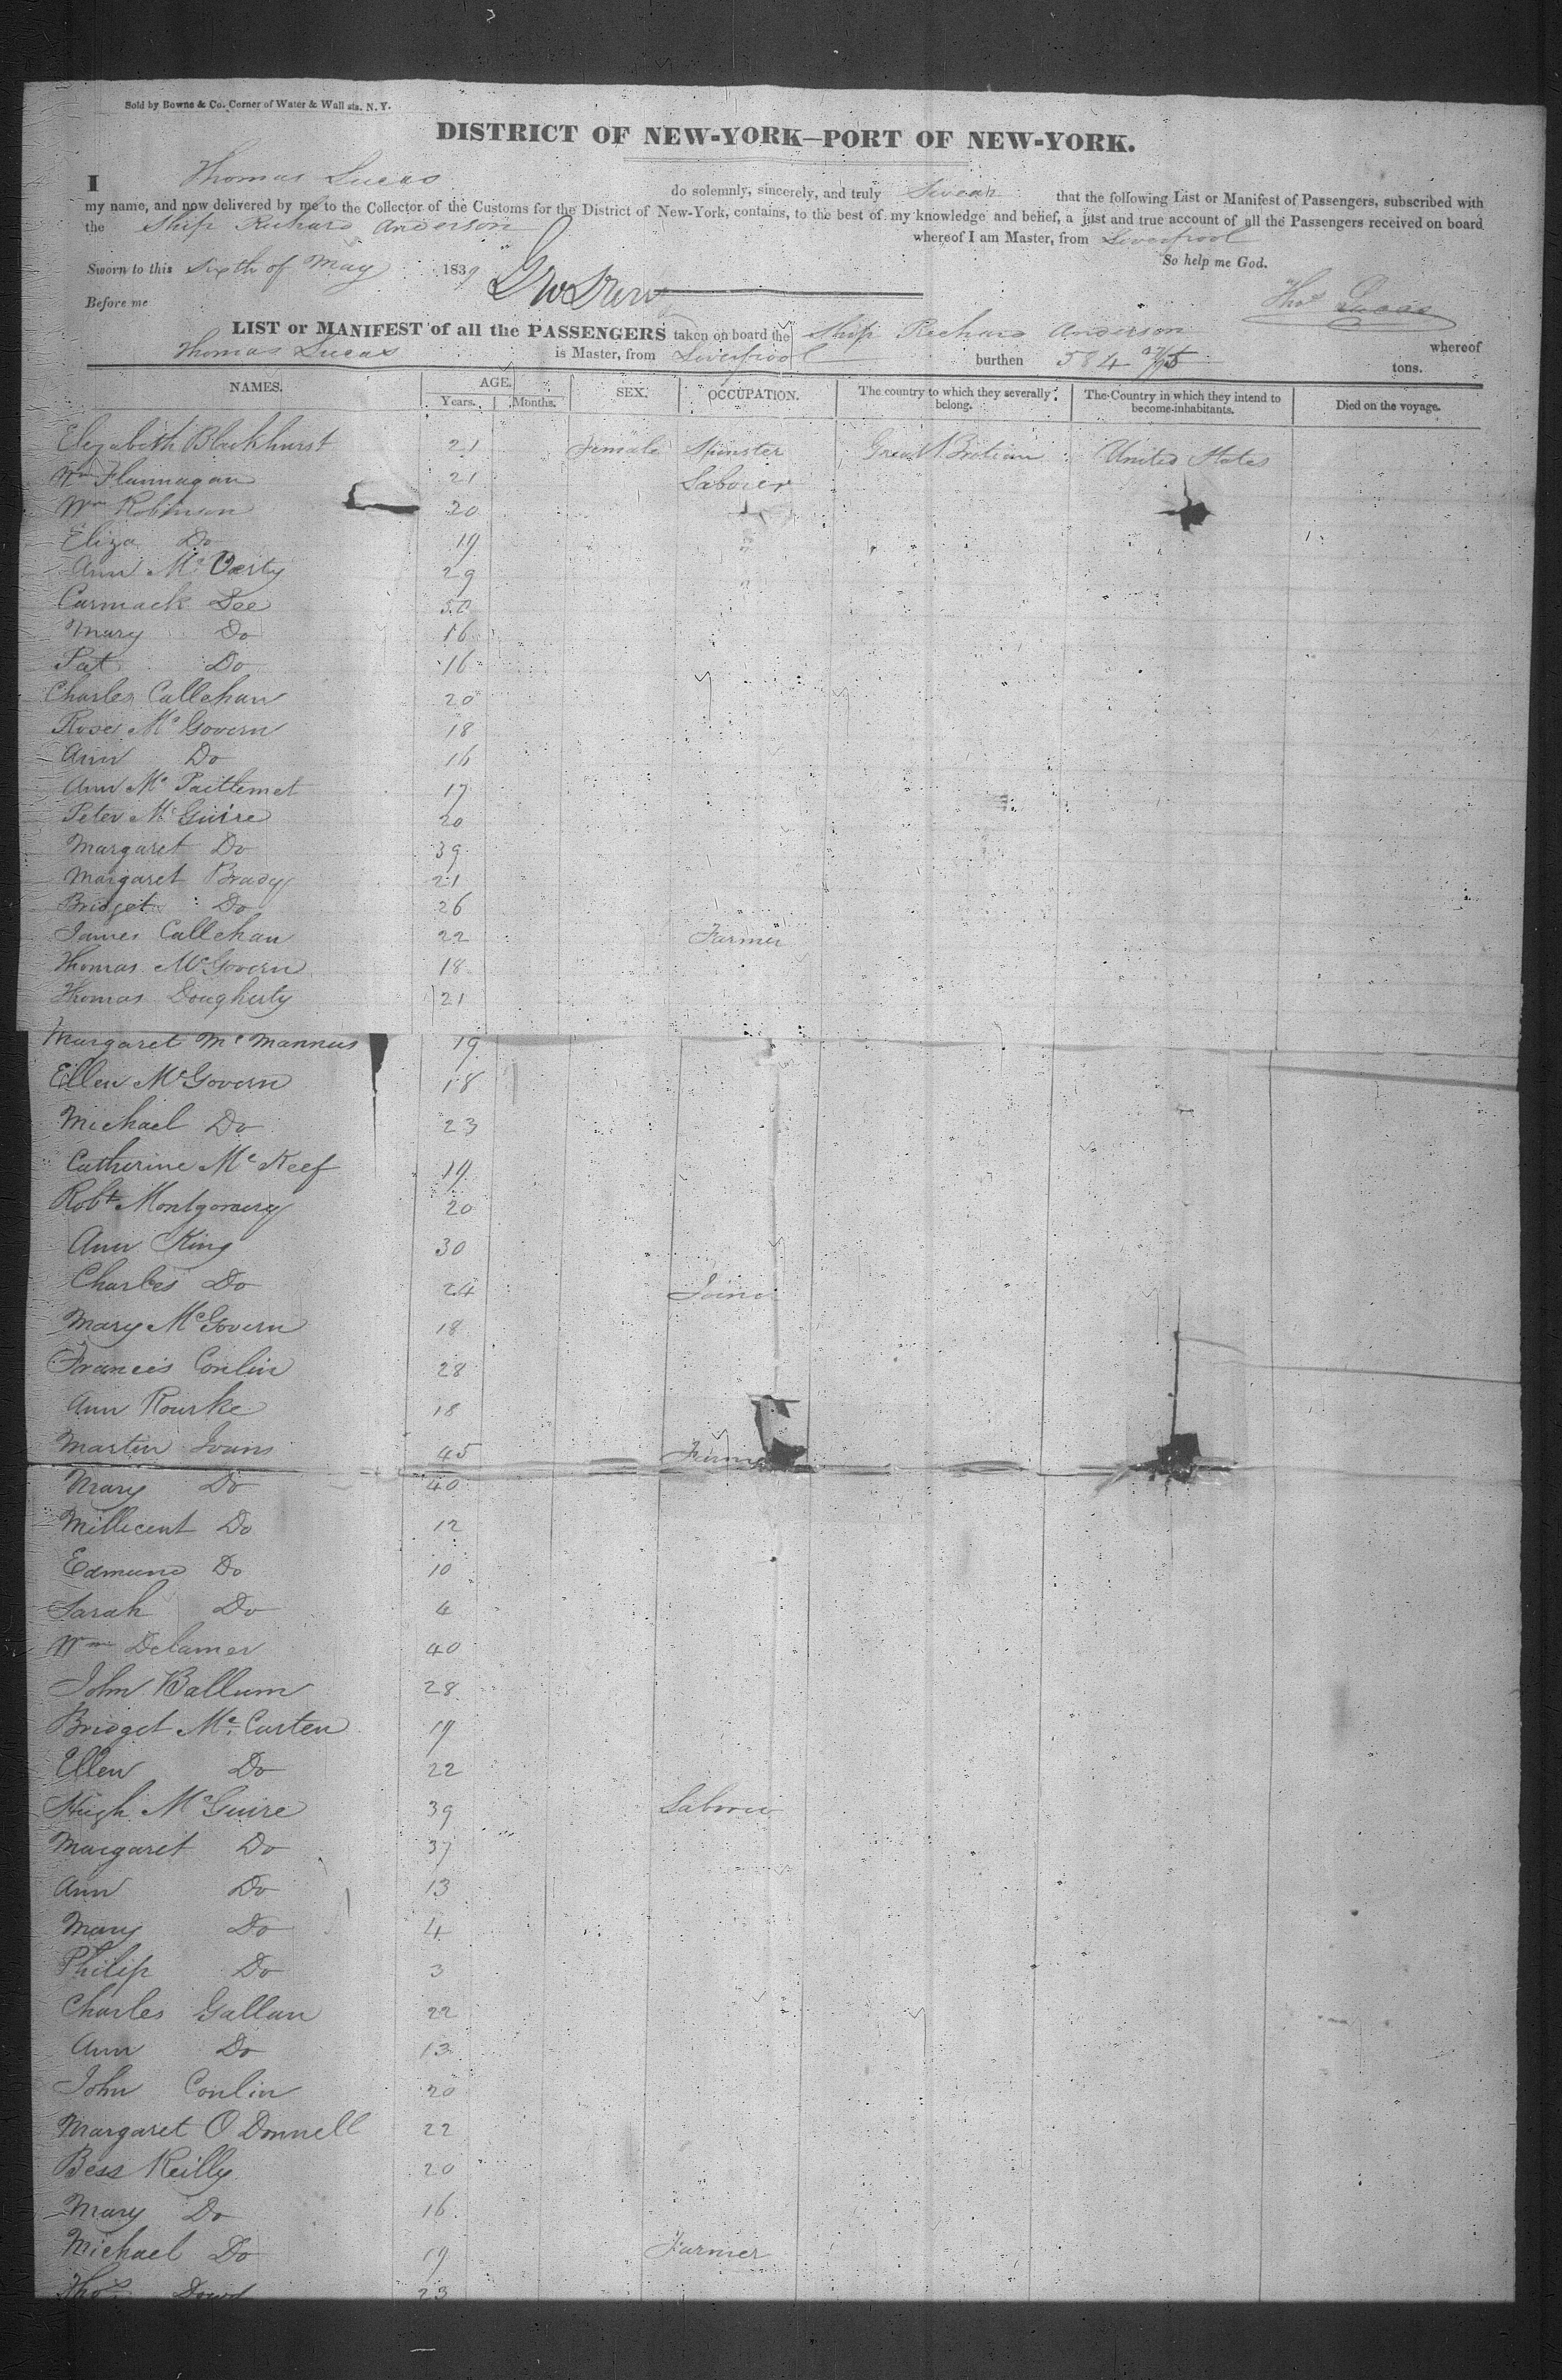 Sold by Bowne & Co. Corner of Water & Wall sts. N. Y.
DISTRICT OF NEW-YORK—PORT OF NEW-YORK.
I Thomas Lucas do solemnly, sincerely, and truly Swear that the following List or Manifest of Passengers, subscribed with
my name, and now delivered by me to the Collector of the Customs for the District of New-York, contains, to the best of my knowledge and belief, a just and true account of all the Passengers received on board
the Ship Richard Anderson whereof I am Master, from Liverpool
Sworn to this Sixth of May 1839 So help me God.
Before me Thos Lucas
LIST or MANIFEST of all the PASSENGERS taken on board the Ship Richard Anderson whereof
Thomas Lucas is Master, from Liverpool burthen 584 tons.
NAMES. AGE. SEX. OCCUPATION. The country to which they severally belong. The Country in which they intend to become inhabitants. Died on the voyage.
Years. Months.
Elizabeth Blackhurst 21 Female Spinster Great Britian United States
Wm Flannagan 21 Laborer
Wm Robinson 20
Eliza Do 19
Ann Mc 29
Carmack Lee
Mary Do 16
Pat Do 16
Charles Callehan 20
Rose Mc Govern 18
Ann Do 16
Ann Mc 17
Peter Mc Guire 20
Margaret Do 39
Margaret Brady 21
Bridget Do 26
James Callehan 22 Farmer
Thomas McGovern 18
Thomas Dougherty 21
Margaret Mc Mannus 19
Ellen McGovern 18
Michael Do 23
Catherine Mc Keef 19
Robt Montgomery 20
Ann King 30
Charles Do 24 Joiner
Mary McGovern 18
Francis Conlin 28
Ann Rourke 18
Martin Ivans 45 Farmer
Mary Do 40
Millicent Do 12
Edmund Do 10
Sarah Do 4
Wm Delamer 40
John Ballum 28
Bridget Mc Carten 19
Ellen Do 22
Hugh McGuire 39 Laborer
Margaret Do 37
Ann Do 13
Mary Do 4
Philip Do 3
Charles Gallan 22
Ann Do 13
John Conlin 20
Margaret O Donnell 22
Bess Reilly 20
Mary Do 16
Michael Do 19 Farmer
Thos Dowd 23